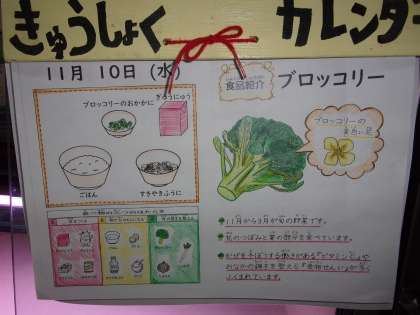 きゅうしょく カレンダ
11月 10日 (水)
食品紹介
ブロッコリー
ぎゅうにゅう
ブロッコリーのおかかに
ごはん
すきやきふうに
ブロッコリーの
黄色い花
11月から3月が旬の野菜です。
花のつぼみと茎の部分を食べています。
かぜを予ぼうする働きがある「ビタミンC」や
おなかの調子を整える「食物せんい」が多く
ふくまれています。